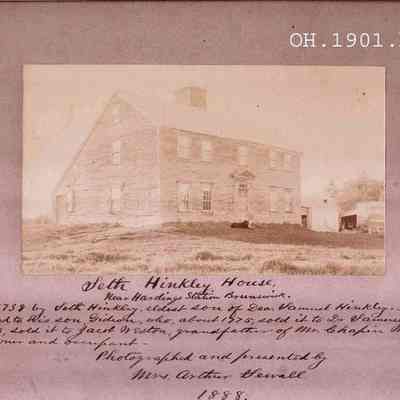 OH.1901.
Seth Hinkley House,
Near Hardings Station Brunswick.
1738 by Seth Hinkley, eldest son of Dea. Samuel Hinkley.
to his son, Gideon, who, about 1795, sold it to Dr.
sold it to Jacob Weston, grandfather of Mr. Chapin
and occupant.
Photographed and presented by
Mrs. Arthur Sewall
1888.